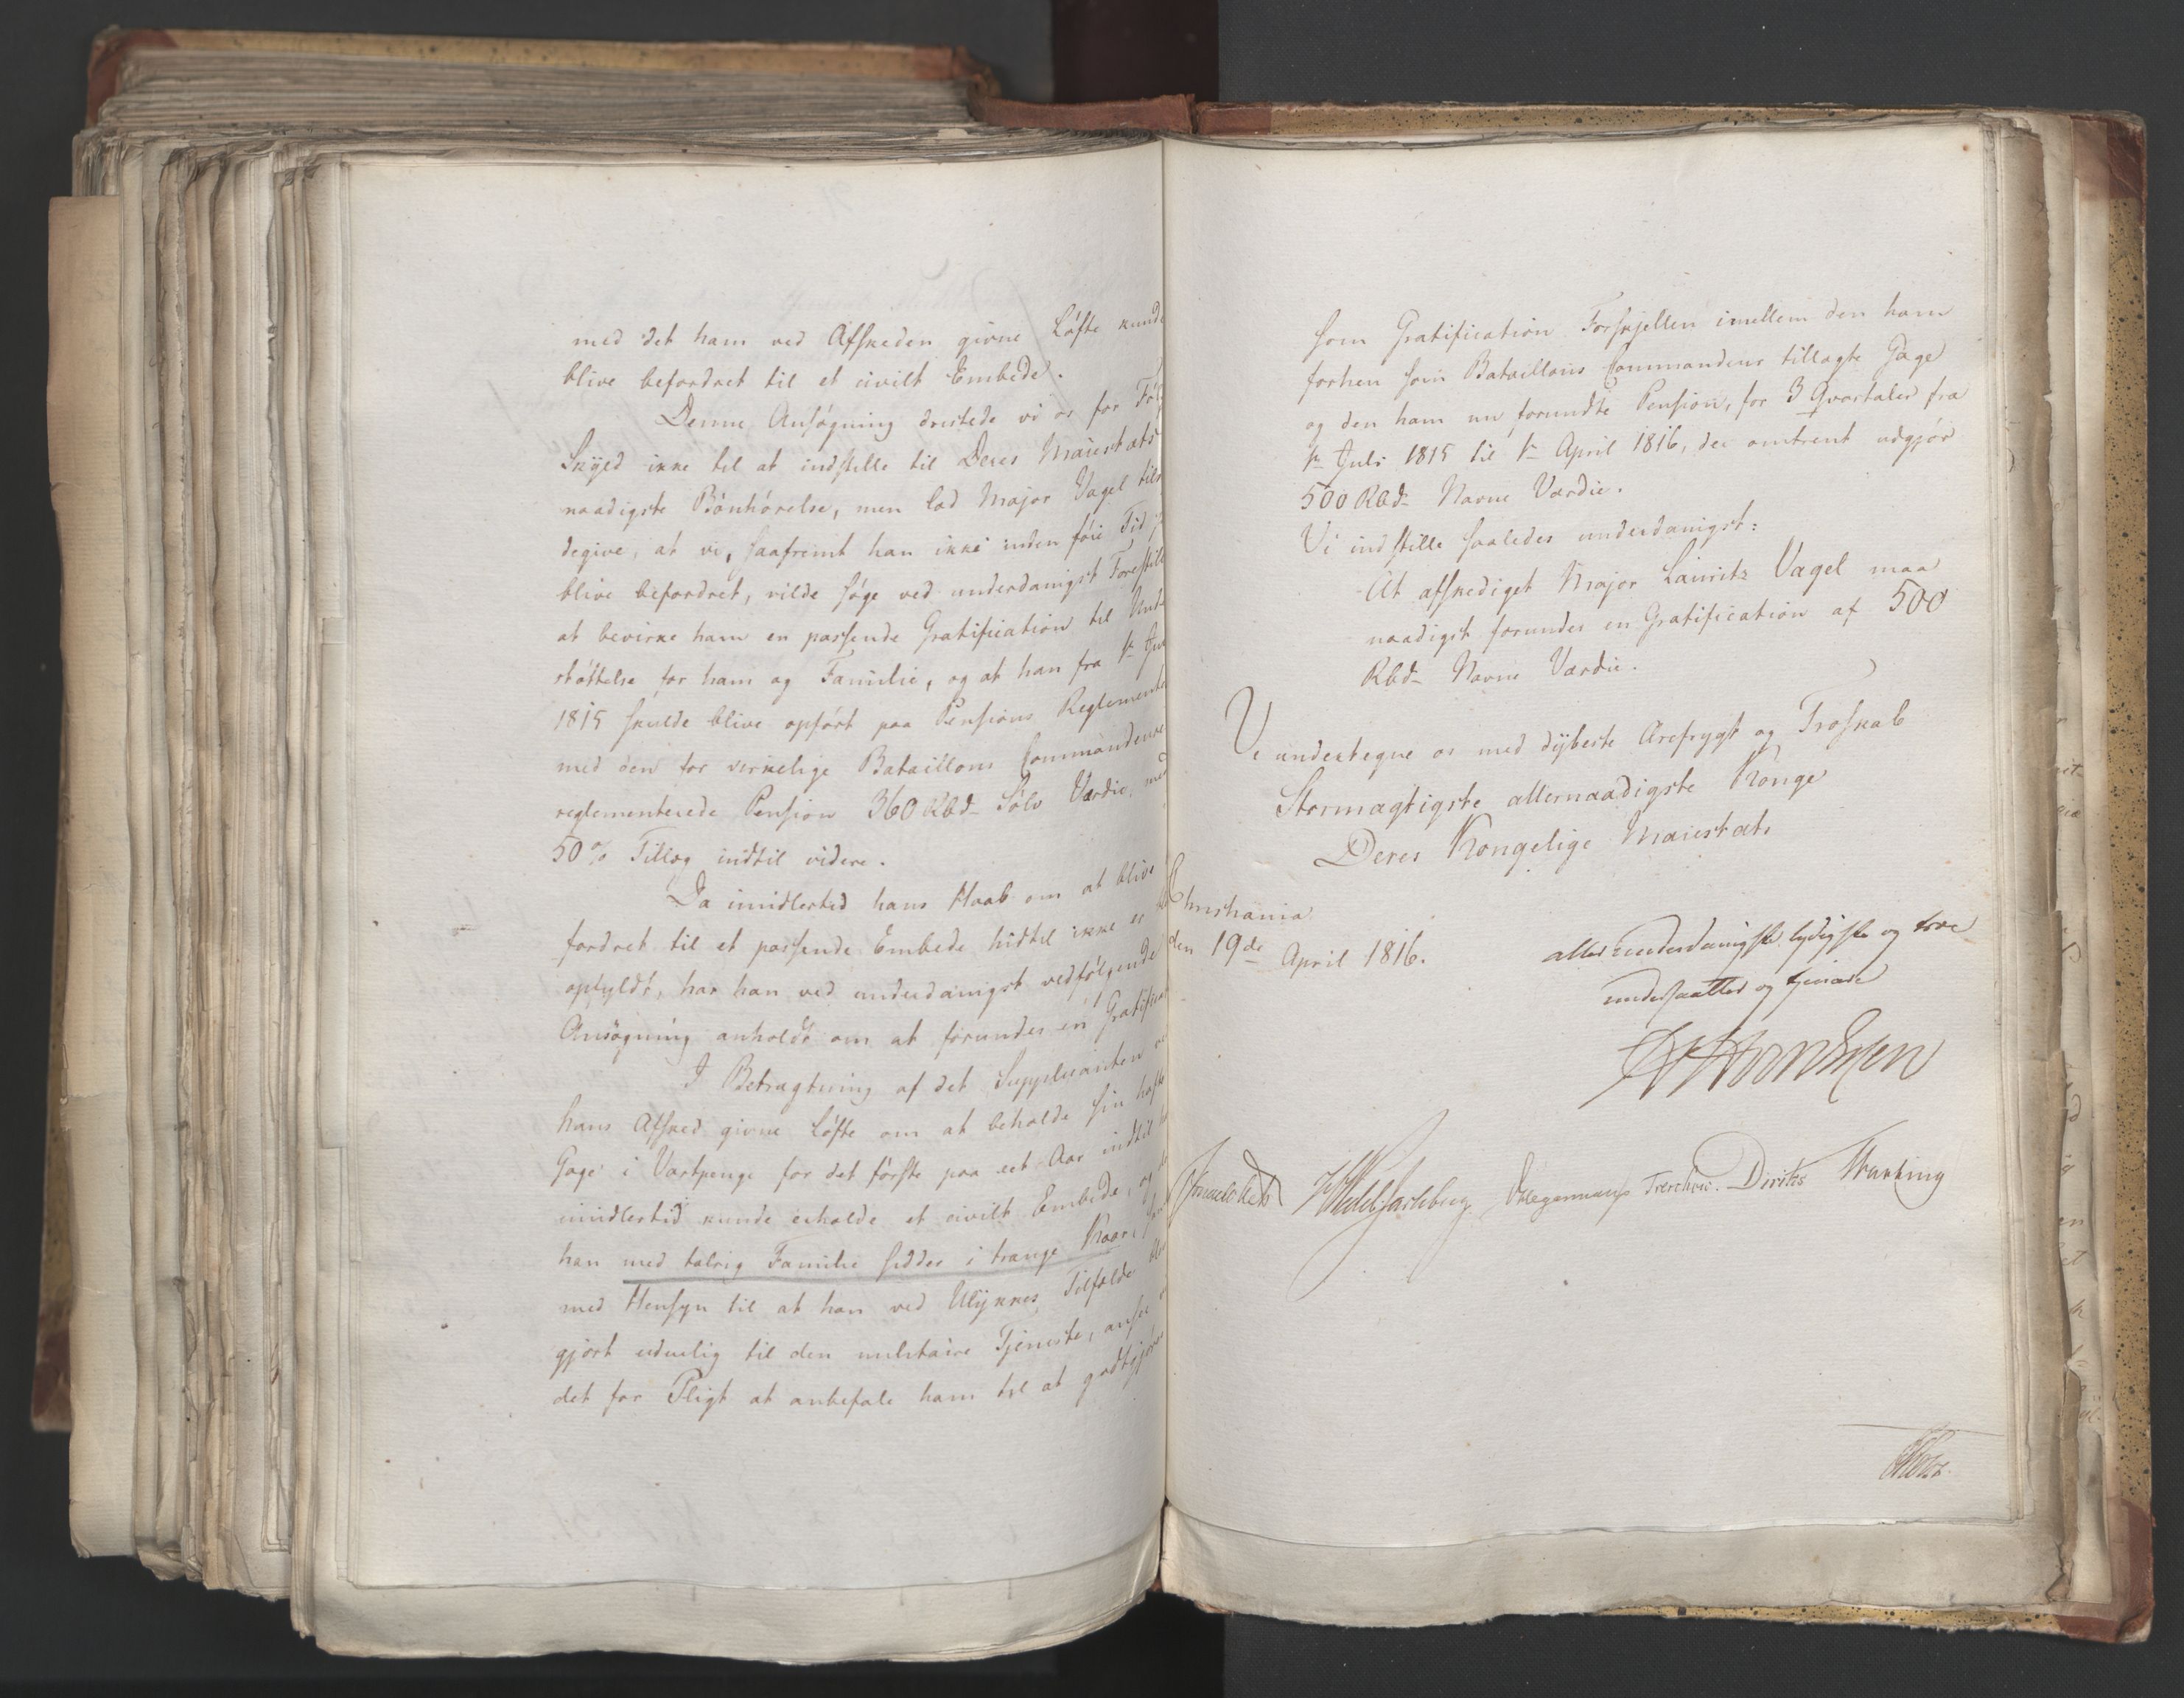 med det ham ved Afskeden givne Løfte kunde
blive befordret til et civilt Embede.
Denne Ansøgning dristede vi os for
Skyld ikke til at indstille til Deres Maiestæts
naadigste Bønhørelse, men lod Major Vagel
degive, at vi, saafremt han ikke inden føie Tid
blive befordret, vilde søge ved underdanigst
at bevirke ham en passende Gratification til
støttelse for ham og Familie, og at han fra 1te
1815 skulde blive opført paa Pensions
med den for virkelige Bataillons
reglementerede Pension 360 Rbd Sølv Værdie, med
50% Tillæg indtil videre.
Da imidlertid hans Haab om at blive
fordret til et passende Embede hidtil ikke er
opfyldt, har han ved underdanigst vedfølgende
Ansøgning anholdt om at forundes en
I Betragtning af det Supplicanten
hans Afsked givne Løfte om at beholde sin
Gage i Vartpenge for det første paa eet Aar indtil
imidlertid kunde erholde et civilt Embede, og
han med talrig Familie sidder i trange Kaar,
med Hensyn til at han ved Ulykkes Tilfælde
gjort uduelig til den militaire Tjeneste, ansee
det for Pligt at anbefale ham til at godtgjøres
som Gratification Forskjellen imellem den ham
forhen som Bataillons Commandeur tillagte Gage
og den ham nu forundte Pension, for 3 Qvartaler fra
1te Juli 1815 til 1te April 1816, der omtrent udgjør
500 Rbd Navne Værdie.
Vi indstille saaledes underdanigst:
At afskediget Major Lauritz Vagel maa
naadigst forundes en Gratification af 500
Rbd Navne Værdie.
Vi undertegne os med dybeste Ærefrygt og Troskab
Stormægtigste allernaadigste Konge
Deres Kongelige Maiestæts
Christiania
den 19de April 1816.
allerunderdanigste lydigste og troe
undersaatter og tjenere
Sommerhielm HWedelJarlsberg Treschow. Diriks